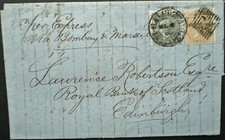 Per Express
via Bombay & Marseilles
Lawrence Robertson Esqre
Royal Bank of Scotland,
Edinburgh